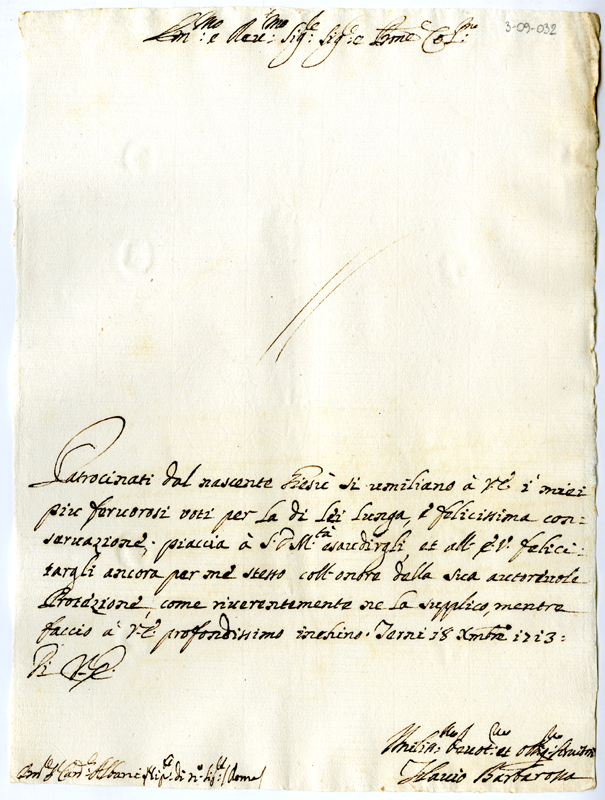 3-09-032
Em:mo e Reu:mo Sig:re Sig:re e Prone Col:mo
Patrocinati dal nascente Giesù si umiliano à V.E. i miei
più feruorosi voti per la di Lei lunga, è felicissima con-
seruazione; piaccia à S.D.M:tà esaudirgli, et all' E.V. felici-
targli ancora per mè stesso coll'onore della sua autoreuole
Protezione, come riuerentemente ne la supplico, mentre
faccio à V.E. profondissimo inchino. Terni 18 Xmbre 1713:
Di V.E.
Umiliss:mo Deuot:mo et Oblig:mo Seruitore
Flauio Barbarossa
Em:o S. Card:le Albani di N:ro Sig:re / Roma /